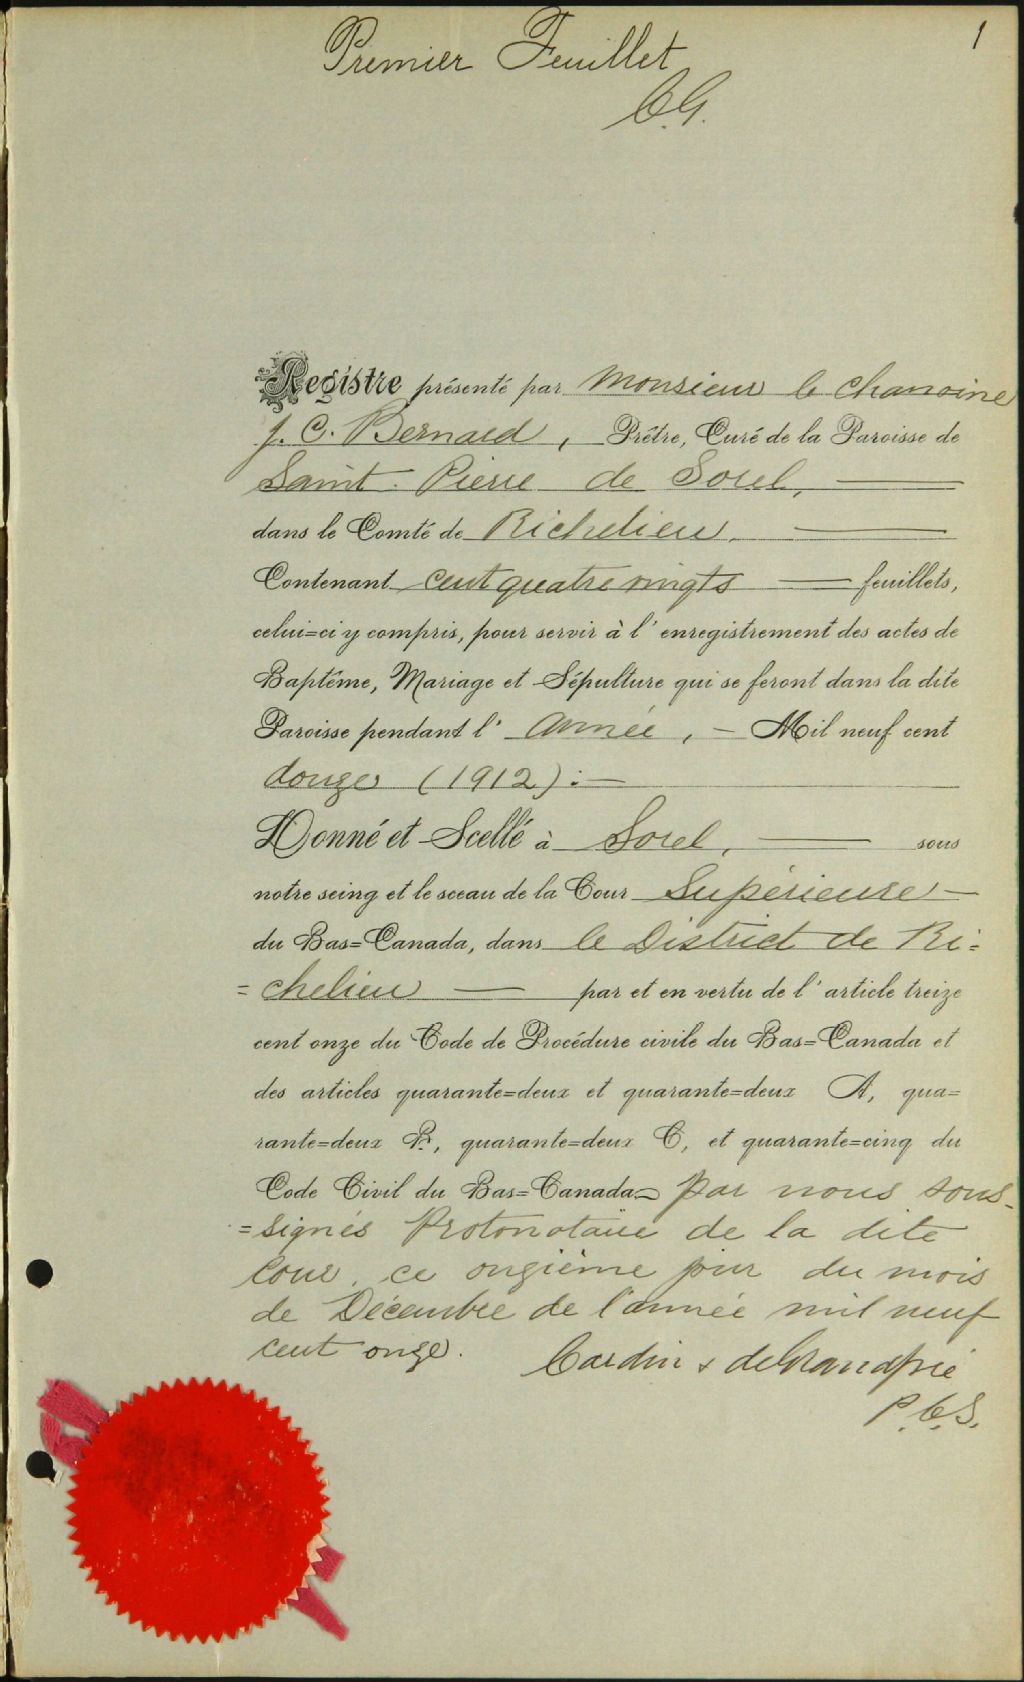 1
Premier Feuillet
C.G.
Registre présenté par Monsieur le Chanoine
J. C. Bernard, Prêtre, Curé de la Paroisse de
Saint-Pierre de Sorel,
dans le Comté de Richelieu.
Contenant cent quatre vingts feuillets,
celui=ci y compris, pour servir à l'enregistrement des actes de
Baptême, Mariage et Sépulture qui se feront dans la dite
Paroisse pendant l'année, — Mil neuf cent
douze (1912) :—
Donné et Scellé à Sorel, sous
notre seing et le sceau de la Cour Supérieure —
du Bas=Canada, dans le District de Ri=
=chelieu — par et en vertu de l'article treize
cent onze du Code de Procédure civile du Bas=Canada et
des articles quarante=deux et quarante=deux A, qua=
rante=deux B, quarante=deux C, et quarante=cinq du
Code Civil du Bas=Canada par nous sous-
=signés Protonotaire de la dite
Cour, ce onzième jour du mois
de Décembre de l'année mil neuf
cent onze.
Cardin & deGrandpré
P.C.S.